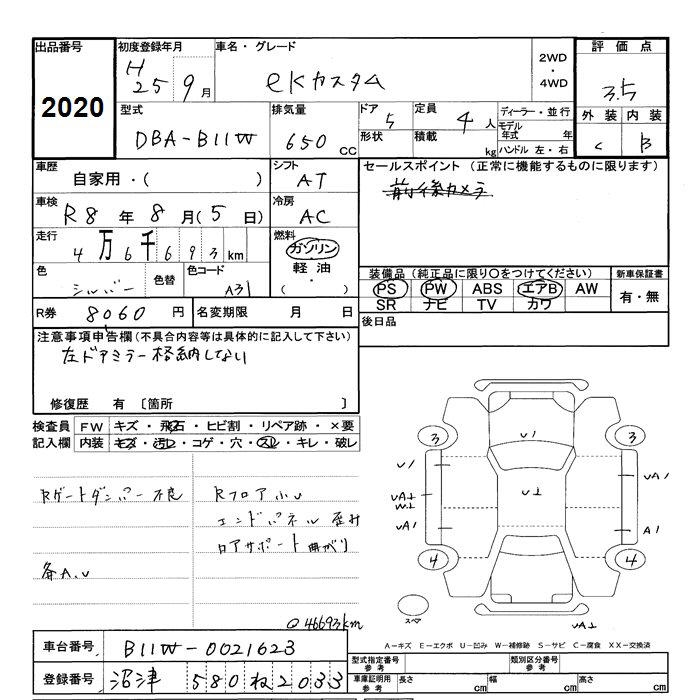 出品番号 初度登録年月 車名・グレード 評価点
2020 H25 9月 eKカスタム 2WD・4WD 3.5
型式 排気量 ドア 定員 ディーラー・並行 外装 内装
DBA-B11W 650cc 5 4人 モデル年式 年 C B
形状 積載 kg ハンドル 左・右
車歴 シフト セールスポイント(正常に機能するものに限ります)
自家用・( ) AT 前後カメラ
車検 冷房
R8年8月(5日) AC
走行 燃料
4万6千693km ガソリン
色 色替 色コード 軽油 装備品(純正品に限り〇をつけてください) 新車保証書
シルバー A31 ・( ) PS PW ABS エアB AW 有・無
R券 8060円 名変期限 月 日 SR ナビ TV カワ
注意事項申告欄(不具合内容等は具体的に記入して下さい) 後日品
左ドアミラー格納しない
修復歴 有 〔箇所 〕
検査員 FW キズ・飛石・ヒビ割・リペア跡・×要
記入欄 内装 キズ・汚レ・コゲ・穴・スレ・キレ・破レ
3 U1 3
U1 UA1
Rゲートダンパー不良 Rフロア小U
UA⊥ U⊥
W⊥
エンドパネル歪み UA1 A1
ロアサポート曲がり
4 4
各A.U
スペア
46693km UA⊥
A-キズ E-エクボ U-凹み W-補修跡 S-サビ C-腐食 XX-交換済
車台番号 B11W-0021623 型式指定番号 参考 類別区分番号 参考
登録番号 沼津 580 ね2033 車庫証明用 参考 長さ cm 幅 cm 高さ cm